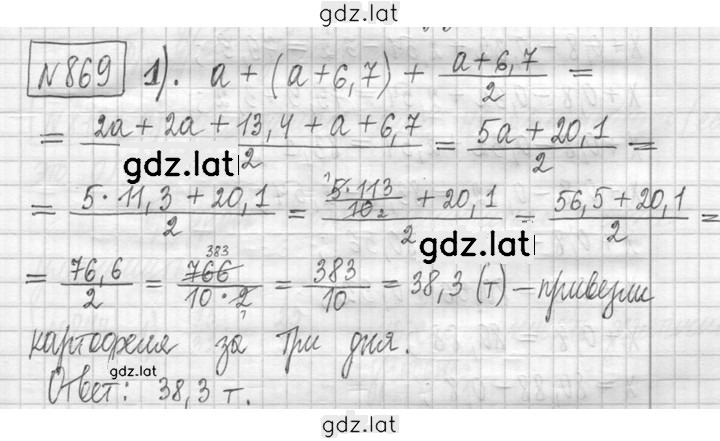 gdz.lat
№869 1). a + (a + 6,7) + (a + 6,7)/2 =
= (2a + 2a + 13,4 + a + 6,7)/2 = (5a + 20,1)/2 =
gdz.lat
= (5 · 11,3 + 20,1)/2 = (5 · 113/10 + 20,1)/2 = (56,5 + 20,1)/2 =
gdz.lat
= 76,6/2 = 766/(10 · 2) = 383/10 = 38,3 (т) – привезли
картофеля за три дня.
Ответ: 38,3 т.
gdz.lat
gdz.lat